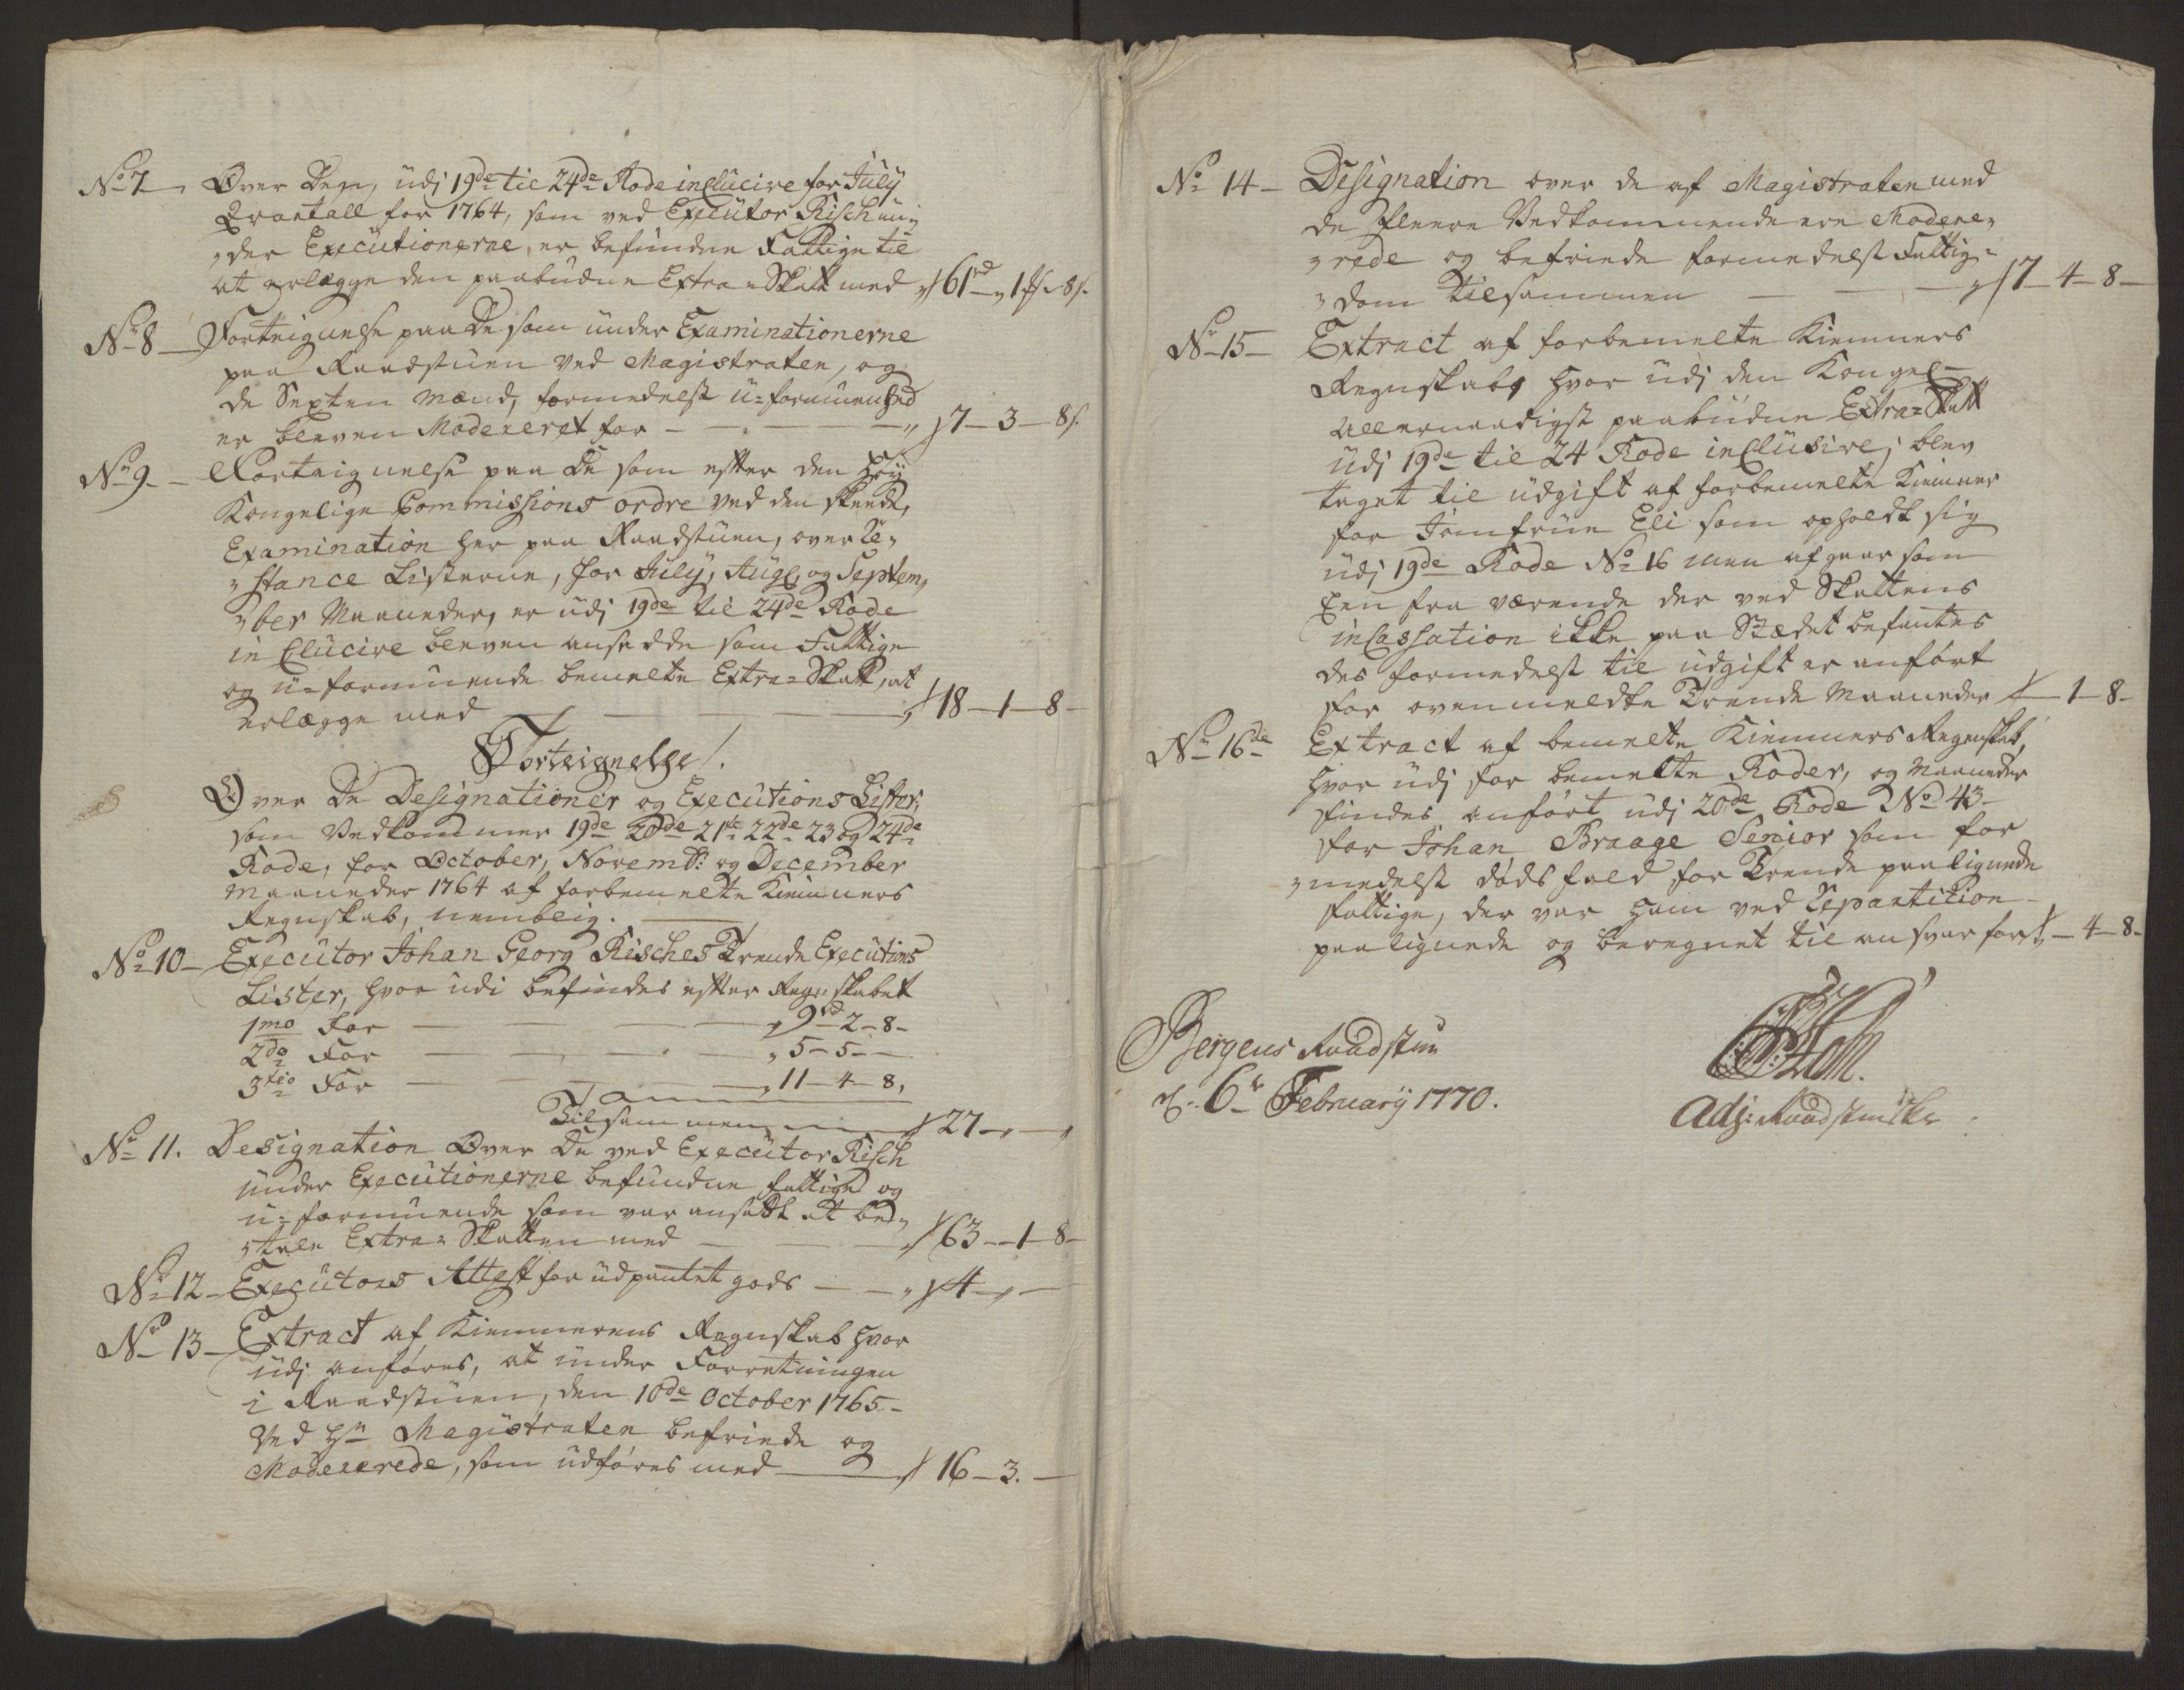 No 7 Over Dem, udj 19de til 24de Rode inclucive for July
Qvartall for 1764, som ved Executor Risch un-
der Executionerne, er befundne Fattige til
at erlægge den paabudne Extra-Skatt med 61rd 1 8s.
No 8 Forteignelse paa De som under Examinationerne
paa Raadstuen ved Magistraten, og
de Sexten Mænd, formedelst u-formuenhed
er bleven Modereret for 7-3-8s.
No 9 Forteignelse paa De som efter den høy
Kongelige Commissions ordre ved den skeede,
Examination her paa Raadstuen, over Re-
stance Listerne, for July, Aug, og Septem-
ber Maaneder, er udj 19de til 24de Rode
inclucive bleven ansedde som Fattige
og u-formuende bemelte Extra-Skatt, at
erlægge med 18-1-8
Forteignelse.
Over De Designationer og Executions Lister,
som Vedkommer 19de 20de 21de 22de 23 og 24de
Rode, for October, Novembr: og December
Maaneder 1764 af forbemelte Kiemners
Regnskab, nemblig.
No 10 Executor Johan Georg Risches Trende Executions
Lister, hvor udi befindes efter Regnskabet
1mo for 9rd-2-8-
2do for 5-5-
3tio for 11-4-8,
Tilsammen 27
No 11. Designation Over De ved Executor Risch
under Executionerne befundne fattige og
u-formuende som var ansatt at be-
tale Extra-Skatten med 63-1-8
No 12 Executors Attest for udpantet gods 4
No 13 Extract af Kiemnerens Regnskab hvor
udj anføres, at under Forretningen
i Raadstuen, den 10de October 1765
Ved Hr. Magistraten befriede og
Modererede, som udføres med 16-3.
No 14 Designation over de af Magistraten med
de fleere Vedkommende ere Modere-
rede og befriede formedelst Fattig-
dom tilsammen 7-4-8
No 15 Extract af forbemelte Kiemners
Regnskab, hvor udj den Kongel-
Allernaadigst paabudne Extra-Skatt
udj 19de til 24 Rode inclusive; blev
taget til udgift af forbemelte Kiemner
for Jomfrue Eli som opholdt sig
udj 19de Rode No 16 men afgaar som
Een fra værende der ved Skattens
incassation ikke paa Stædet befantes
des formedelst til udgift er anført
for ovenmeldte Trende Maaneder 1-8-
No 16de Extract af bemelte Kiemners Regnskab,
hvor udj for bemelte Roder, og Maaneder
findes anført udj 20de Rode No 43
for Johan Braage Senior som for
medelst dødsfald for Trende paalignede
fattige, der var ham ved Repartition
paalignede og beregnet til ansvar for 4-8-
Bergens Raadstue
d. 6te February 1770.
Adj: Raadstueskr